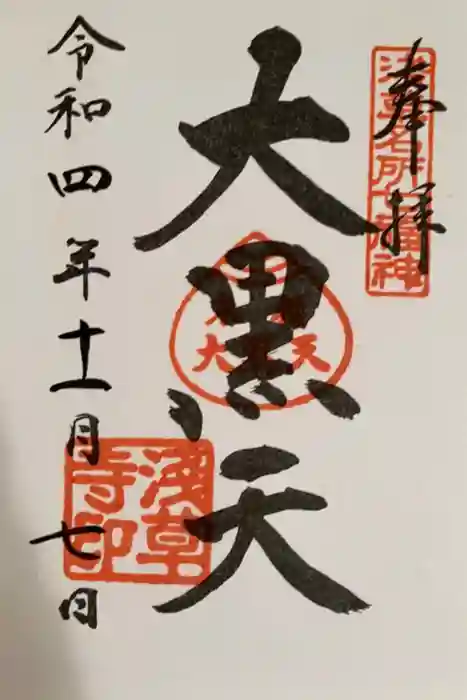 奉拝
浅草名所七福神
大黒天
令和四年十一月七日
浅草
寺印